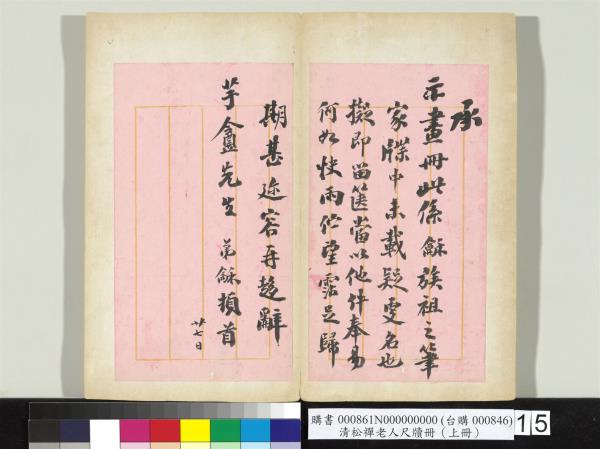 承
示畫冊此係龢族祖之筆
家牒中未載疑更名也
擬即留篋當以他件奉易
何如快雨佇望霑足歸
期甚迩容再趍辭
芋盦先生 弟龢頓首
廿七日
購書 000861N000000000 (台購 000846)
清松禪老人尺牘冊(上冊)
15